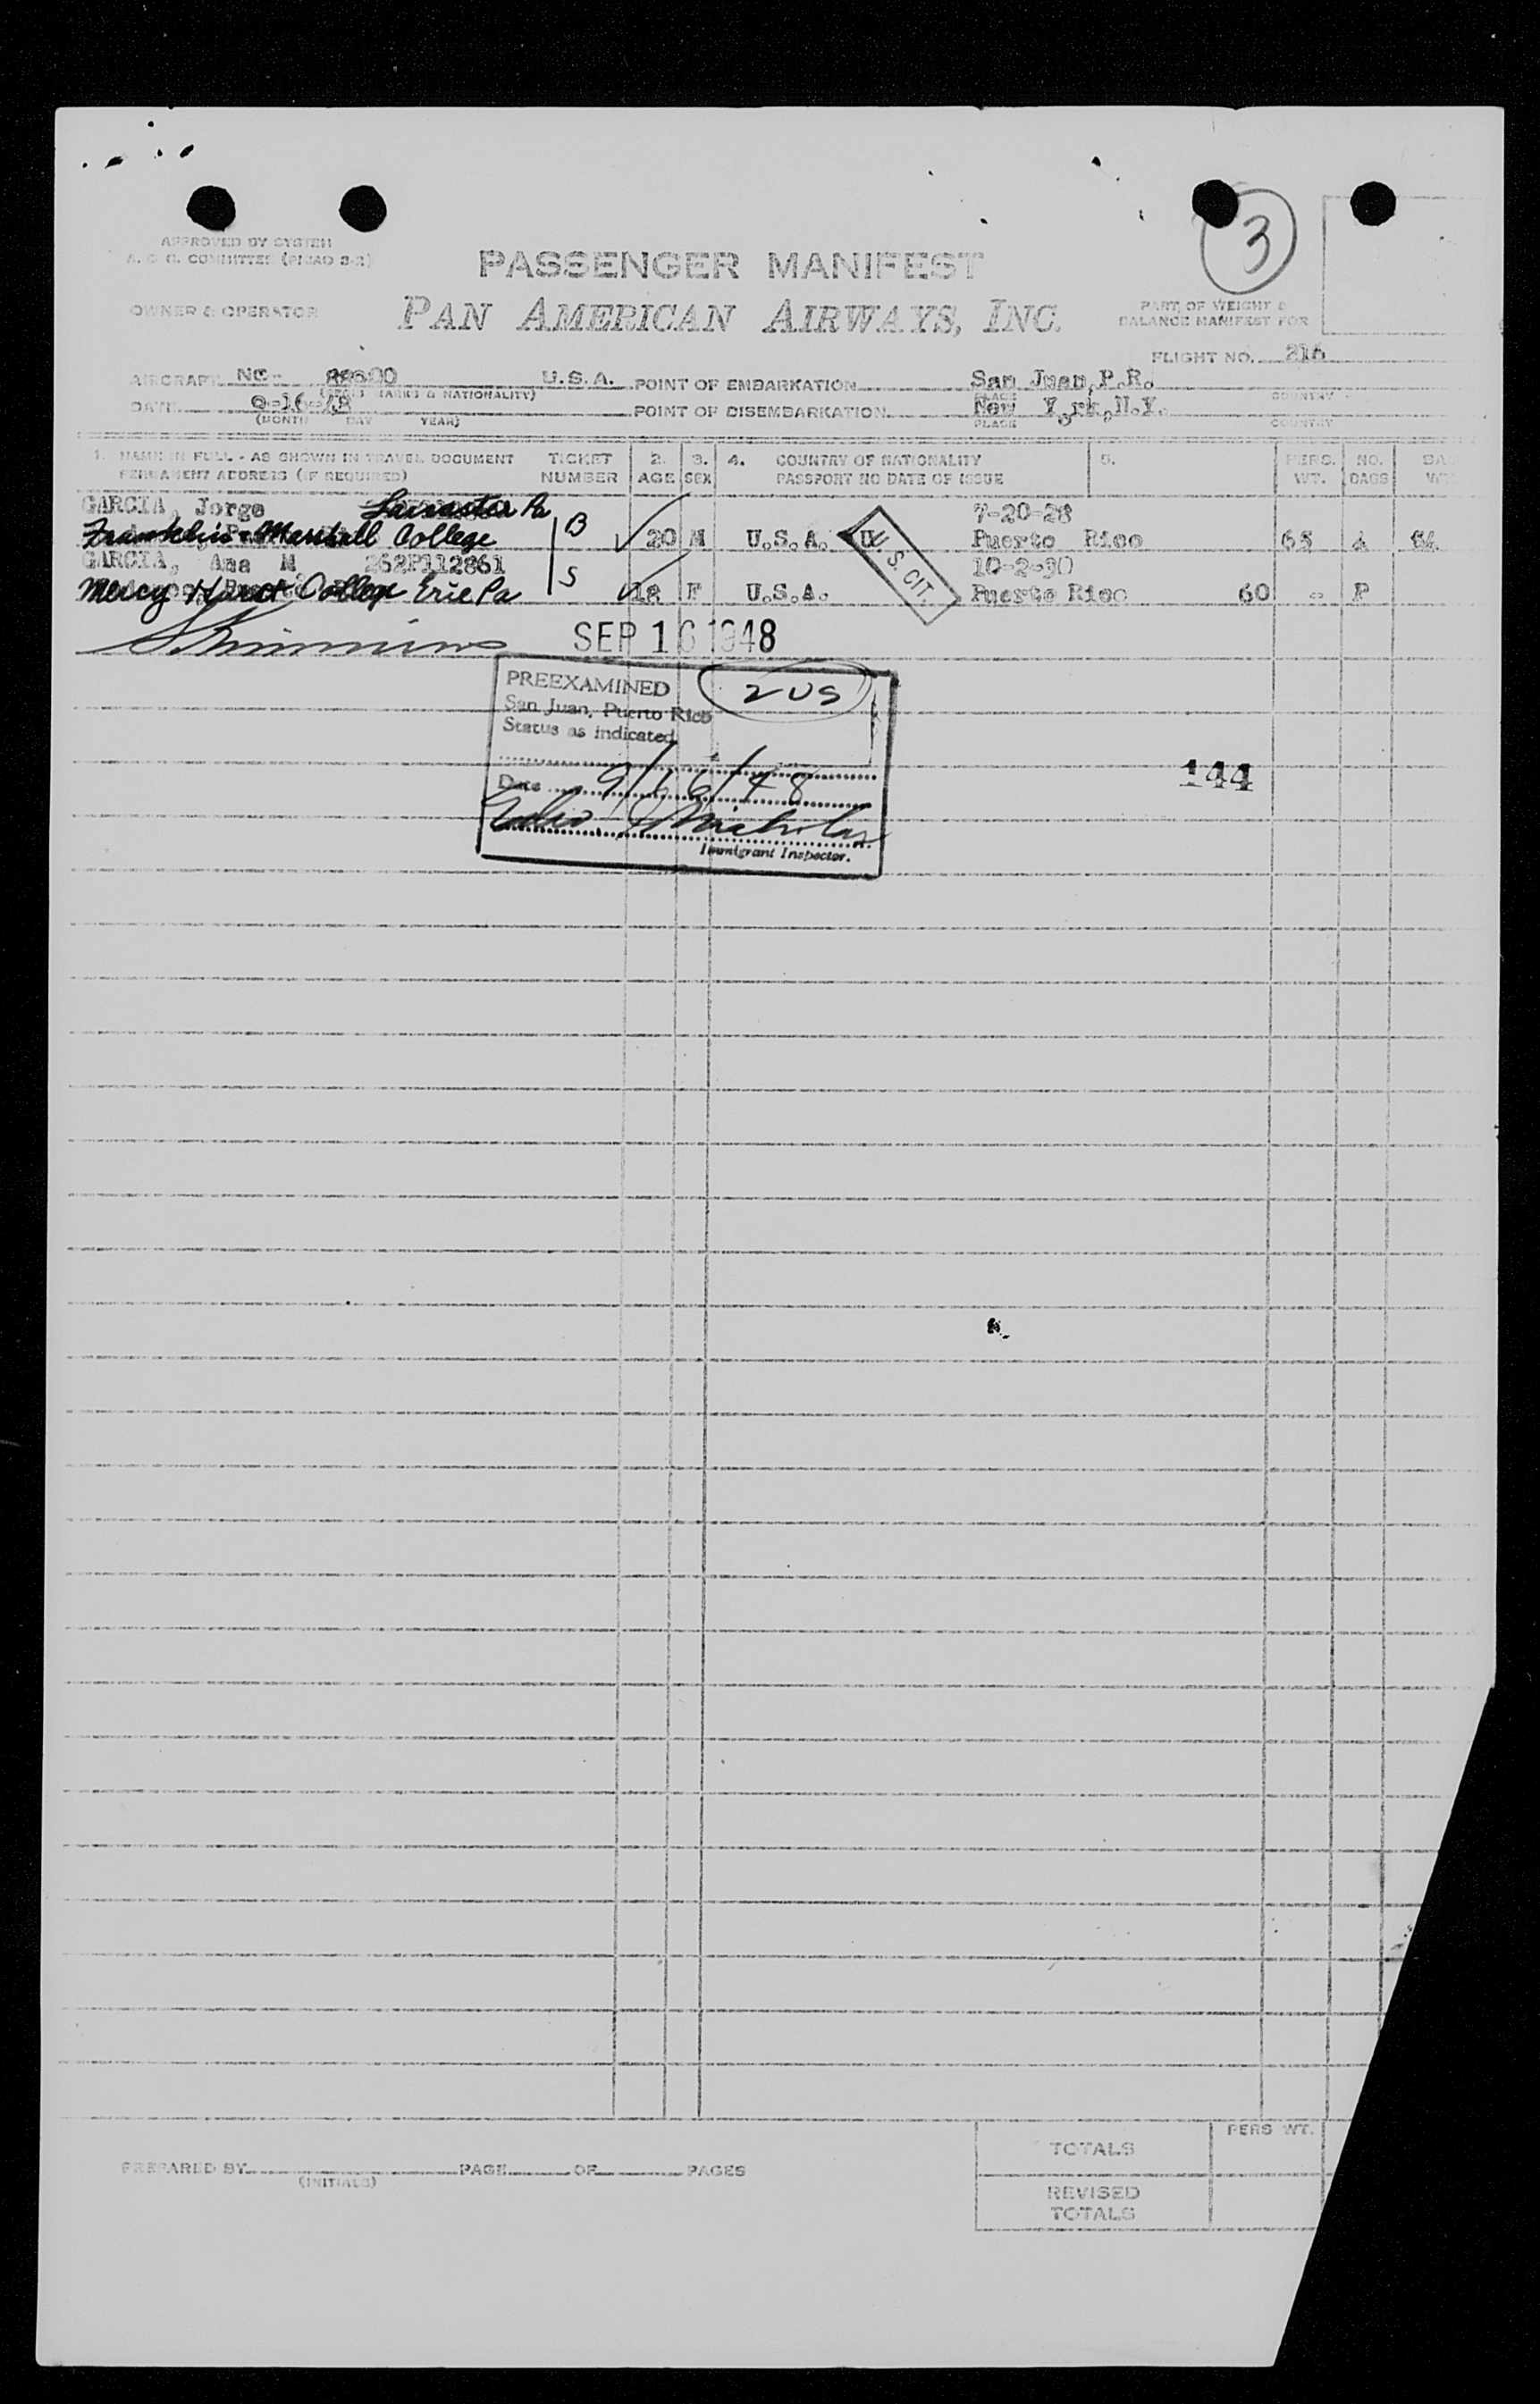 3
APPROVED BY SYSTEM
A. C. G. COMMITTEE (PICAO 3-2)
PASSENGER MANIFEST
OWNER & OPERATOR
PAN AMERICAN AIRWAYS, INC.
PART OF WEIGHT &
BALANCE MANIFEST FOR
FLIGHT NO. 216
AIRCRAFT NC- U.S.A. POINT OF EMBARKATION San Juan, P.R.
(MARKS & NATIONALITY) PLACE COUNTRY
DATE 9-16-48 POINT OF DISEMBARKATION New York, N.Y.
(MONTH DAY YEAR) PLACE COUNTRY
1. NAME IN FULL - AS SHOWN IN TRAVEL DOCUMENT TICKET 2. 3. 4. COUNTRY OF NATIONALITY 5. PERS. NO.
PERMANENT ADDRESS (IF REQUIRED) NUMBER AGE SEX PASSPORT NO DATE OF ISSUE WT. BAGS
GARCIA, Jorge Lancaster Pa 7-20-28
Franklin & Marshall College B 20 M U.S.A. U.S. CIT. Puerto Rico
GARCIA, Ana M 262P112861 10-2-30
Mercy Hurst College Erie Pa S 18 F U.S.A. Puerto Rico 60 - P
SEP 16 1948
PREEXAMINED 2 US
San Juan, Puerto Rico
Status as indicated
Date 9/16/48
Immigrant Inspector.
144
PREPARED BY PAGE OF PAGES
(INITIALS)
TOTALS PERS WT.
REVISED
TOTALS